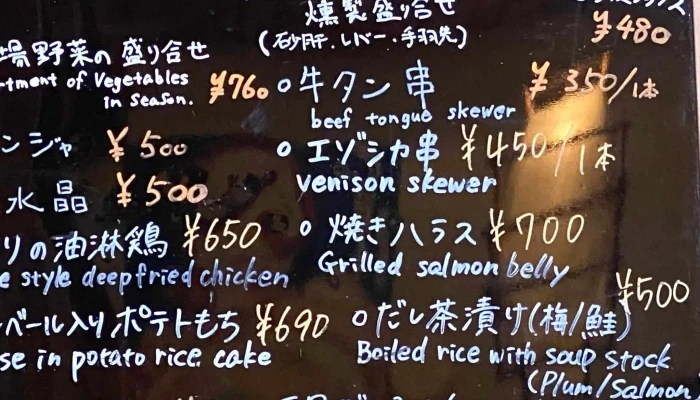 燻製盛り合せ
(砂肝.レバー.手羽先)
¥480
場野菜の盛り合せ
rtment of Vegetables
in Season. ¥760
牛タン串 ¥350/1本
beef tongue skewer
ンジャ ¥500
エゾシカ串 ¥450/1本
venison skewer
水晶 ¥500
りの油淋鶏 ¥650
e style deepfried chicken
焼きハラス ¥700
Grilled salmon belly
ベール入りポテトもち ¥690
se in potato rice cake
だし茶漬け(梅/鮭) ¥500
Boiled rice with soup stock
(Plum/Salmon